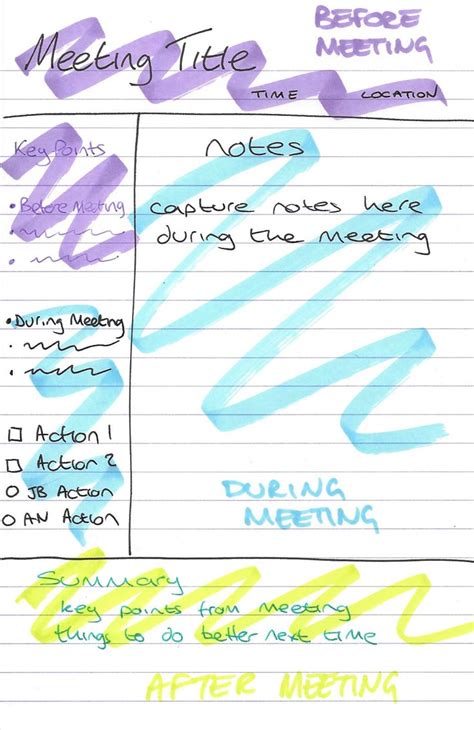 BEFORE
MEETING
Meeting Title
TIME LOCATION
Key Points
• Before Meeting
•
•
• During Meeting
•
•
□ Action 1
□ Action 2
○ JB Action
○ AN Action
Notes
capture notes here
during the meeting
DURING
MEETING
Summary
key points from meeting
things to do better next time
AFTER MEETING